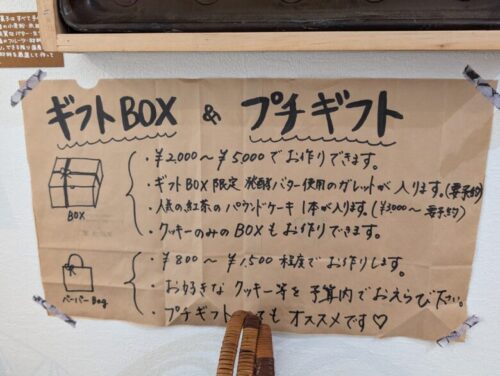 ギフトBOX & プチギフト
・¥2,000〜¥5000でお作りできます。
・ギフトBOX限定 発酵バター使用のガレットが入ります。(要予約)
・人気の紅茶のパウンドケーキ1本が入ります。(¥3000〜要予約)
・クッキーのみのBOXもお作りできます。
BOX
・¥800〜¥1,500程度でお作りします。
・お好きなクッキー等を予算内でおえらび下さい。
・プチギフト てもオススメです♡
ペーパーBag